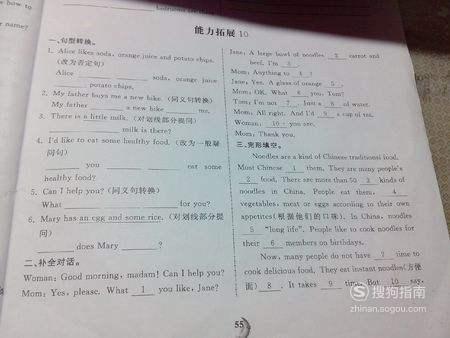 how to
r name?
能力拓展 10
一、句型转换。
1. Alice likes soda, orange juice and potato chips.
(改为否定句)
Alice ________ ________ soda, orange juice
________ potato chips.
2. My father buys me a new bike. (同义句转换)
My father ________ a new bike ________ me.
3. There is a little milk. (对划线部分提问)
________ ________ milk is there?
4. I'd like to eat some healthy food. (改为一般疑
问句)
________ you ________ ________ eat some
healthy food?
5. Can I help you? (同义句转换)
What ________ ________ ________ for you?
6. Mary has an egg and some rice. (对划线部分提
问)
________ does Mary ________?
二、补全对话。
Woman: Good morning, madam! Can I help you?
Mom: Yes, please. What 1 you like, Jane?
Jane: A large bowl of noodles 2 carrot and
beef. I'm 3 .
Mom: Anything to 4 ?
Jane: Yes. A glass of orange 5 .
Mom: OK. What 6 you, Tom?
Tom: I'm not 7 . Just a 8 of water.
Mom: All right. And I'd 9 a cup of tea.
Woman: 10 you are.
Mom: Thank you.
三、完形填空。
Noodles are a kind of Chinese traditional food.
Most Chinese 1 them. They are many people's
2 food. There are more than 50 3 kinds of
noodles in China. People eat them, 4 ,
vegetables, meat or eggs according to their own
appetites (根据他们的口味). In China, noodles
5 "long life". People like to cook noodles for
their 6 members on birthdays.
Now, many people do not have 7 time to
cook delicious food. They eat instant noodles (方便
面) 8 . It takes 9 time. But 10 say,
55
搜狗指南
zhinan.sogou.com